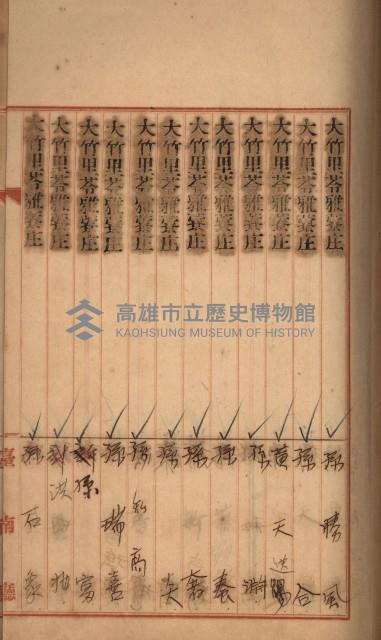 大竹里苓雅寮庄 孫勝風
大竹里苓雅寮庄 孫 合
大竹里苓雅寮庄 黃天送賜
大竹里苓雅寮庄 孫
大竹里苓雅寮庄 孫 春
大竹里苓雅寮庄 孫
大竹里苓雅寮庄 孫 夫
大竹里苓雅寮庄 孫知高
大竹里苓雅寮庄 孫瑞喜
大竹里苓雅寮庄 孫 富
大竹里苓雅寮庄 洪
大竹里苓雅寮庄 孫石象
臺南廳
高雄市立歷史博物館
KAOHSIUNG MUSEUM OF HISTORY